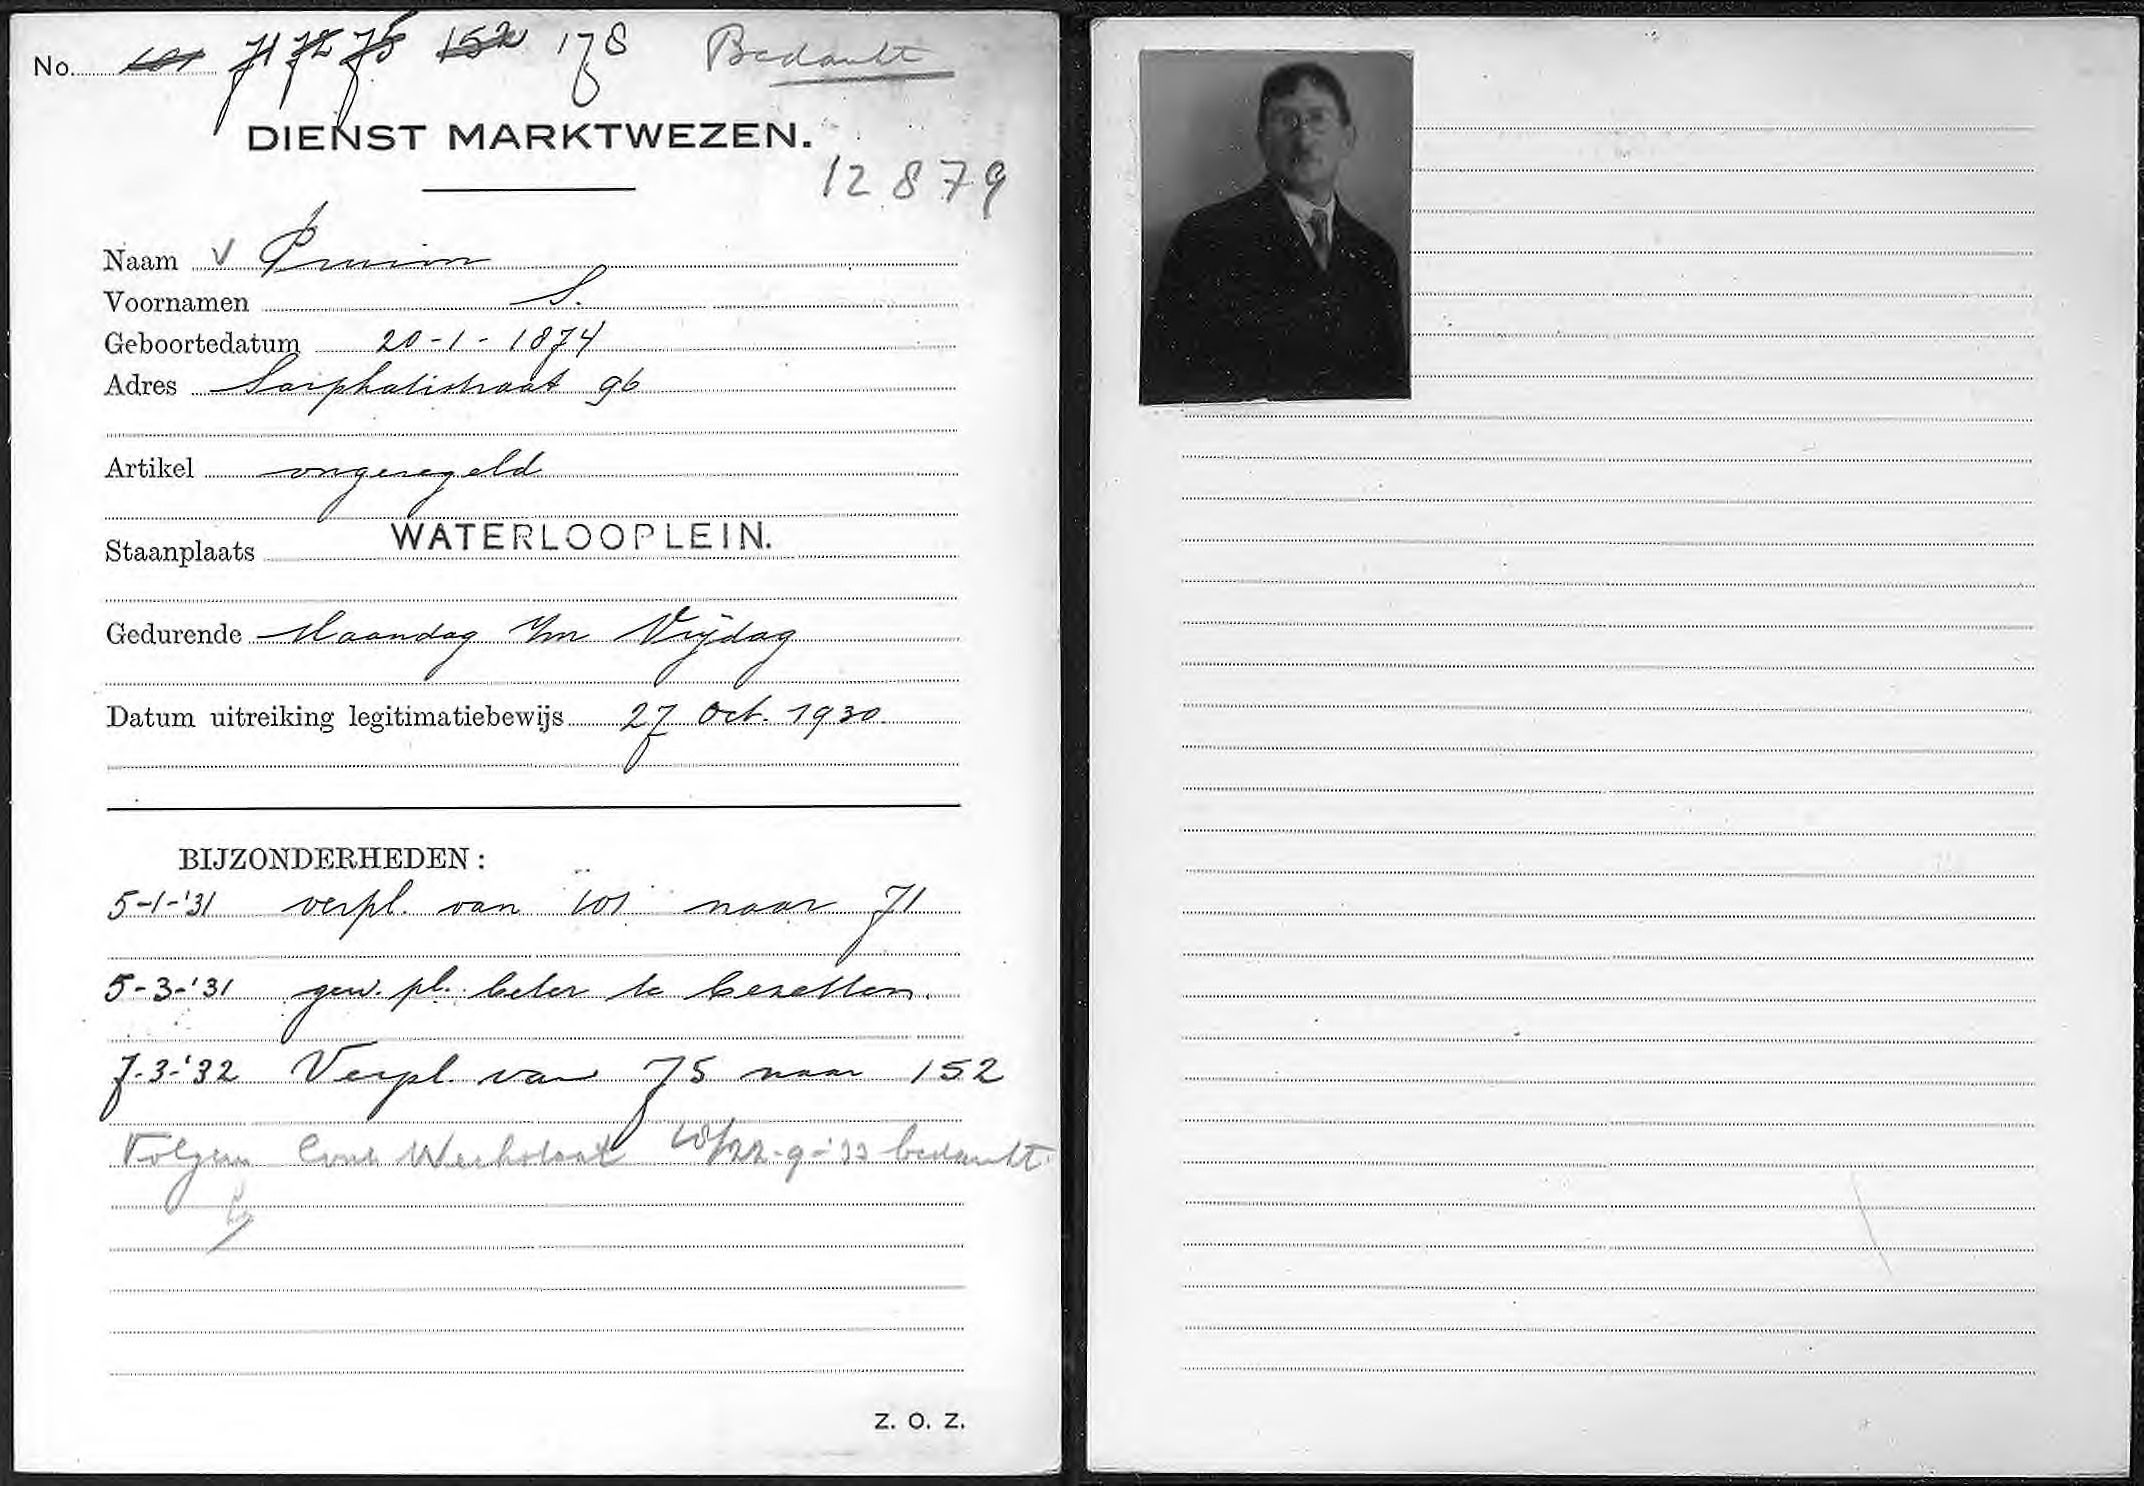 No. 101 71 72 75 152 178 Bedankt
DIENST MARKTWEZEN.
12879
Naam v Pruim
Voornamen S.
Geboortedatum 20-1-1874
Adres Sarphatistraat 96
Artikel ongeregeld
Staanplaats WATERLOOPLEIN.
Gedurende Maandag t/m Vrijdag
Datum uitreiking legitimatiebewijs 27 Oct. 1930.
BIJZONDERHEDEN:
5-1-'31 verpl. van 101 naar 71
5-3-'31 gew. pl. beter te bezetten.
7-3-'32 Verpl. van 75 naar 152
Volgens bedankt
Z. O. Z.